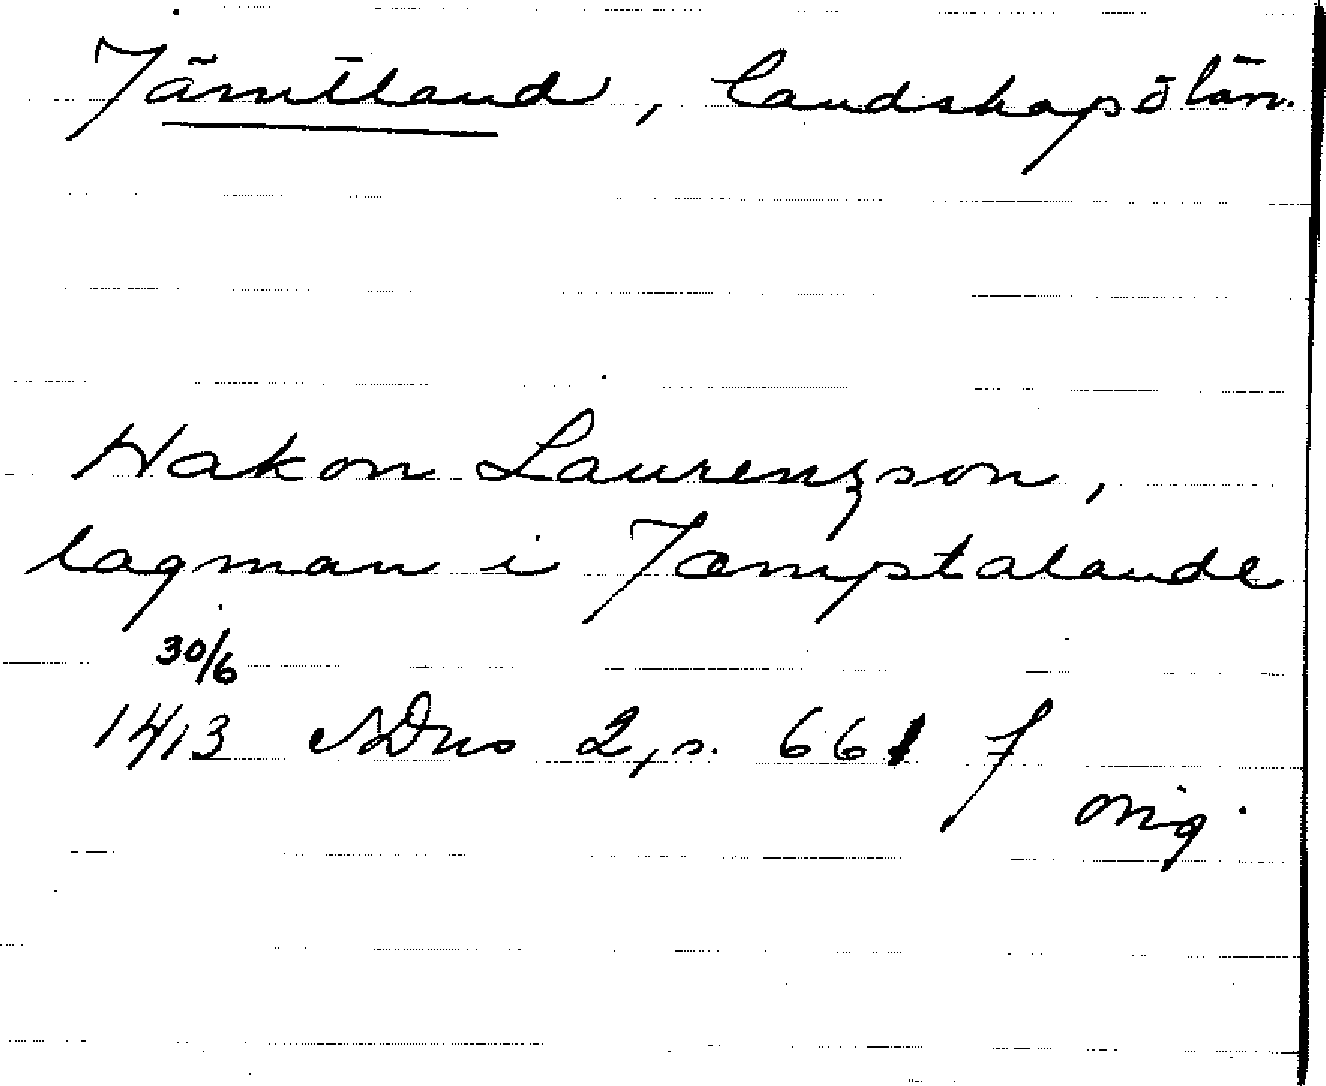 Jämtland, landskap o län.
Hakon Laurenzson,
lagman i Jæmptalande
30/6
1413 SDns 2, s. 661 f
orig.